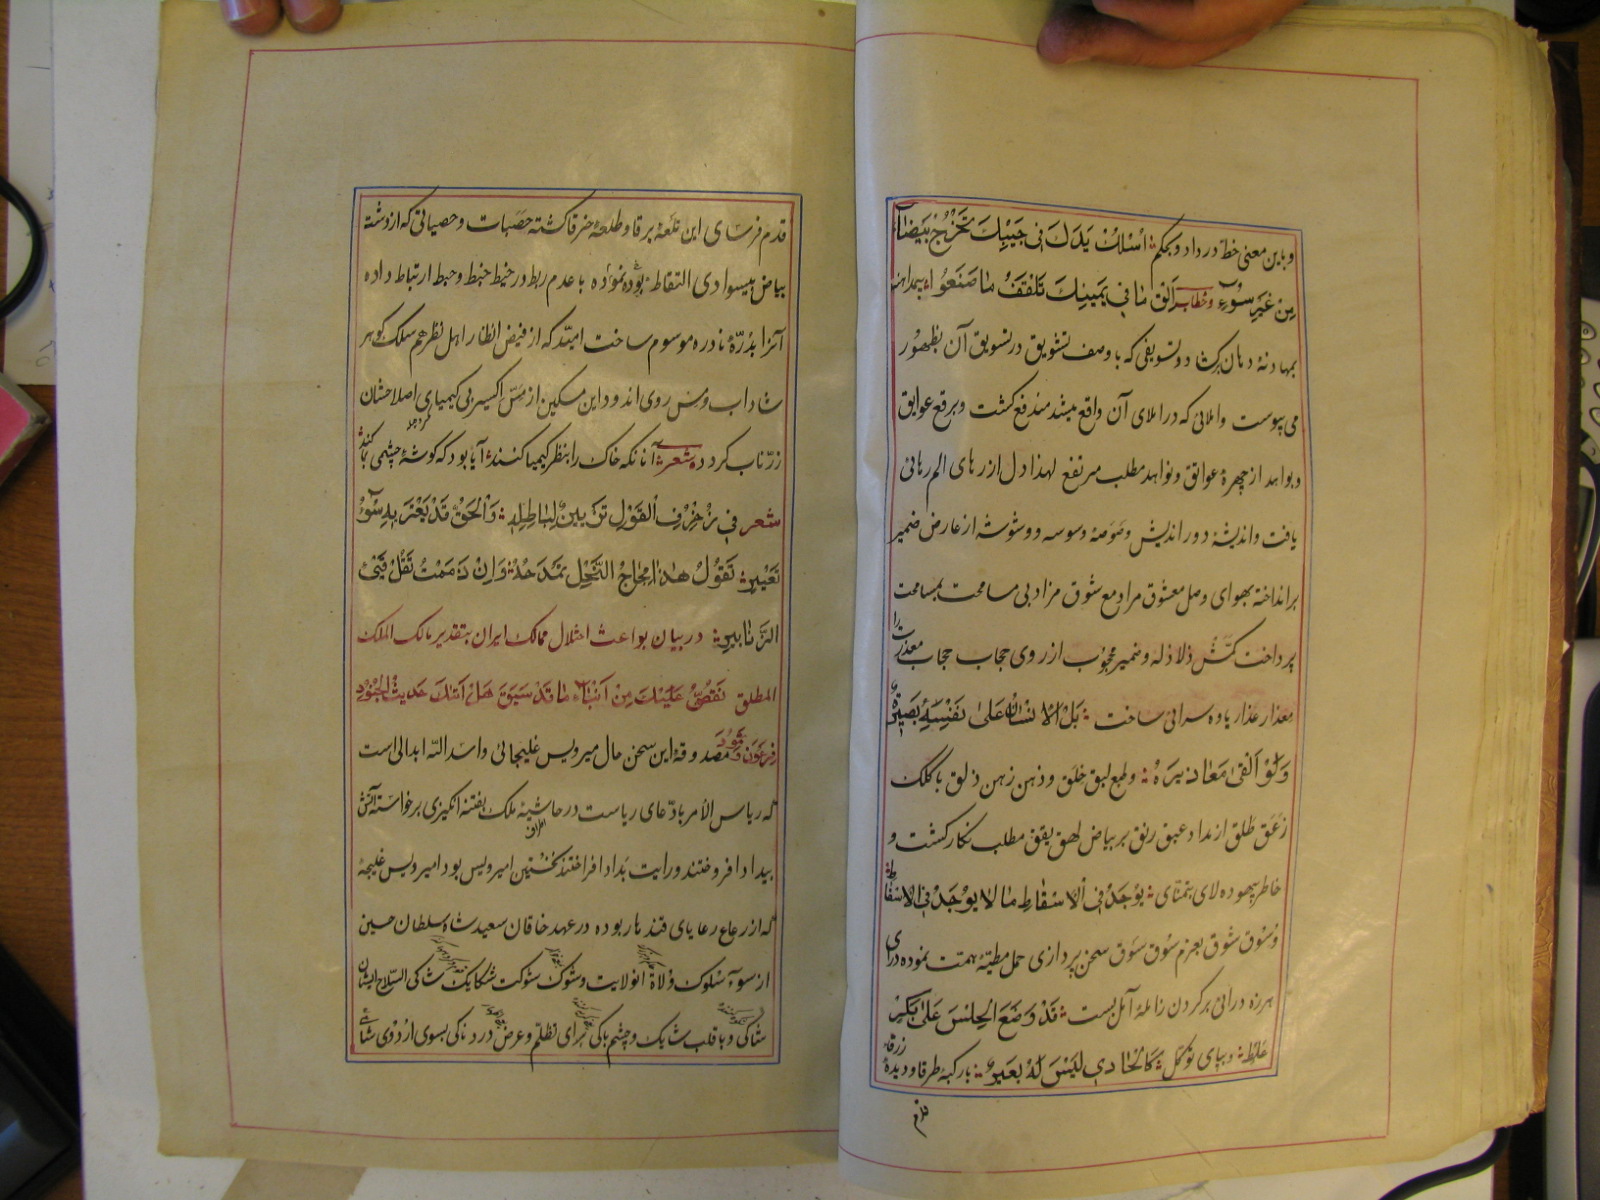 و باین معنی خط در داد و بحکم اسلك یدك فی جیبك تخرج بیضآء
من غیر سوء و خطاب الق ما فی یمینك تلقف ما صنعوا
دهان کشاد و تسویفی که با وصف تشویق در تسویق آن بظهور
می پیوست و املائی که در املای آن واقع میشد مندفع کشت و برقع عوایق
از چهرهٔ عوائق و نواهد مطلب مرتفع لهذا دل از رهای الم رهائی
یافت و اندیشهٔ دور اندیش وسوسه و وشوشه از عارض ضمیر
برانداخته بهوای وصل معشوق مراد مع شوق مزاد بی مسامحت بمسامحت
پرداخت ذلاذله و ضمیر محجوب از روی حجاب حجاب معذرت را
معذار عذار یاوه سرائی ساخت بل الانسان علی نفسه بصیرة
ولو القی معاذیره و لمع لبق خلق و ذهن زهن ذلق با کلك
زعق طلق از مداد عبق رنق بر بیاض لهق یقق مطلب نکار کشت و
خاطر بیهوده لای بتمنای یوجد فی الاسقاط ما لا یوجد فی الاسفاط
و سوق شوق بعزم سوق سوق سخن پردازی حمل مطیهٔ همت نموده درای
هرزه درائی بر کردن زاملهٔ آمل بست قد وضع الحلس علی بکر
غلیظ و بپای توکل کالحادی لیس له بعیر بارکبهٔ طرقا و دیدهٔ زرقاء
قدم
قدم فرسای این تلعهٔ برقا و طلعهٔ خرقا کشته حصبات و حصیاتی که از دشت
بیاض بیسوادی التقاط نموده بود با عدم ربط در خیط خبط و حبط ارتباط داده
آنرا بدرّهٔ نادره موسوم ساخت امید که از فیض انظار اهل نظر هم سلك کوهر
شاداب و مس روی اندود این مسکین از مسّ اکسیر بی کیمیای اصلاحشان
زرّ ناب کردد شعر آنانکه خاك را بنظر کیمیا کنند آیا بود که کوشهٔ چشمی بما کنند
شعر فی زخرف القول تزیین لباطله والحق قد یعتریه سوء
تعبیر تقول هذا مجاج النحل تمدحه وان ذممت تقل قیئ
الزنابیر در بیان بواعث اختلال ممالك ایران بتقدیر مالك الملك
المطلق نقص علیك من انبآء ما قد سبق هل اتیك حدیث الجنود
فرعون و ثمود مصدوقهٔ این سخن حال میر ویس غلیجائی و اسد اللّه ابدالی است
که ریاس الامر بادّعای ریاست در حاشیهٔ ملك بفتنه انکیزی برخواسته آتش
اطراف
بیداد افروختند و رایت بداد افراختند نخستین امیر ویس بود امیر ویس غلیجهٔ
که از رعاع رعایای قندهار بوده در عهد خاقان سعید شاه سلطان حسین
از سوء سلوك ولاة انولایت و شوك شوکت شکایك شاکی السلاح ایشان
شاکی و با قلب شایك و چشم باکی برای تظلم و عرض دردناکی بسوی اردوی شاهی